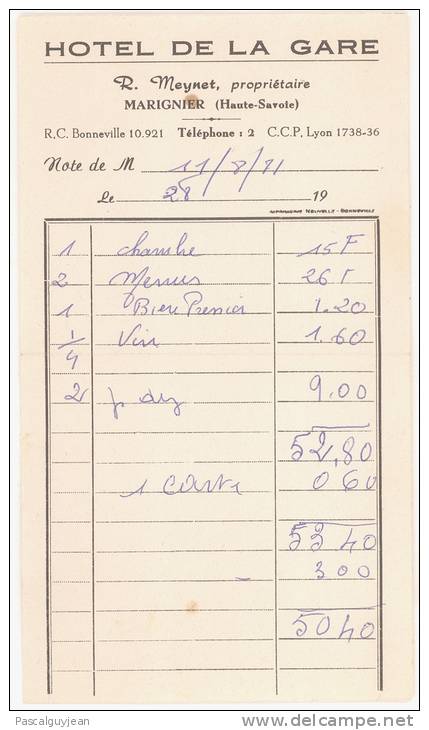 HOTEL DE LA GARE
R. Meynet, propriétaire
MARIGNIER (Haute-Savoie)
R.C. Bonneville 10.921 Téléphone : 2 C.C.P. Lyon 1738-36
Note de M 11/8/71
Le 28 19
IMPRIMERIE NOUVELLE - BONNEVILLE
1 chambre 15 F
2 Menus 26 F
1 Bière Pression 1.20
1/4 Vin 1.60
2 p. dej 9.00
52,80
1 carte 0 60
53 40
- 3 00
50 40
Pascalguyjean
www.delcampe.net